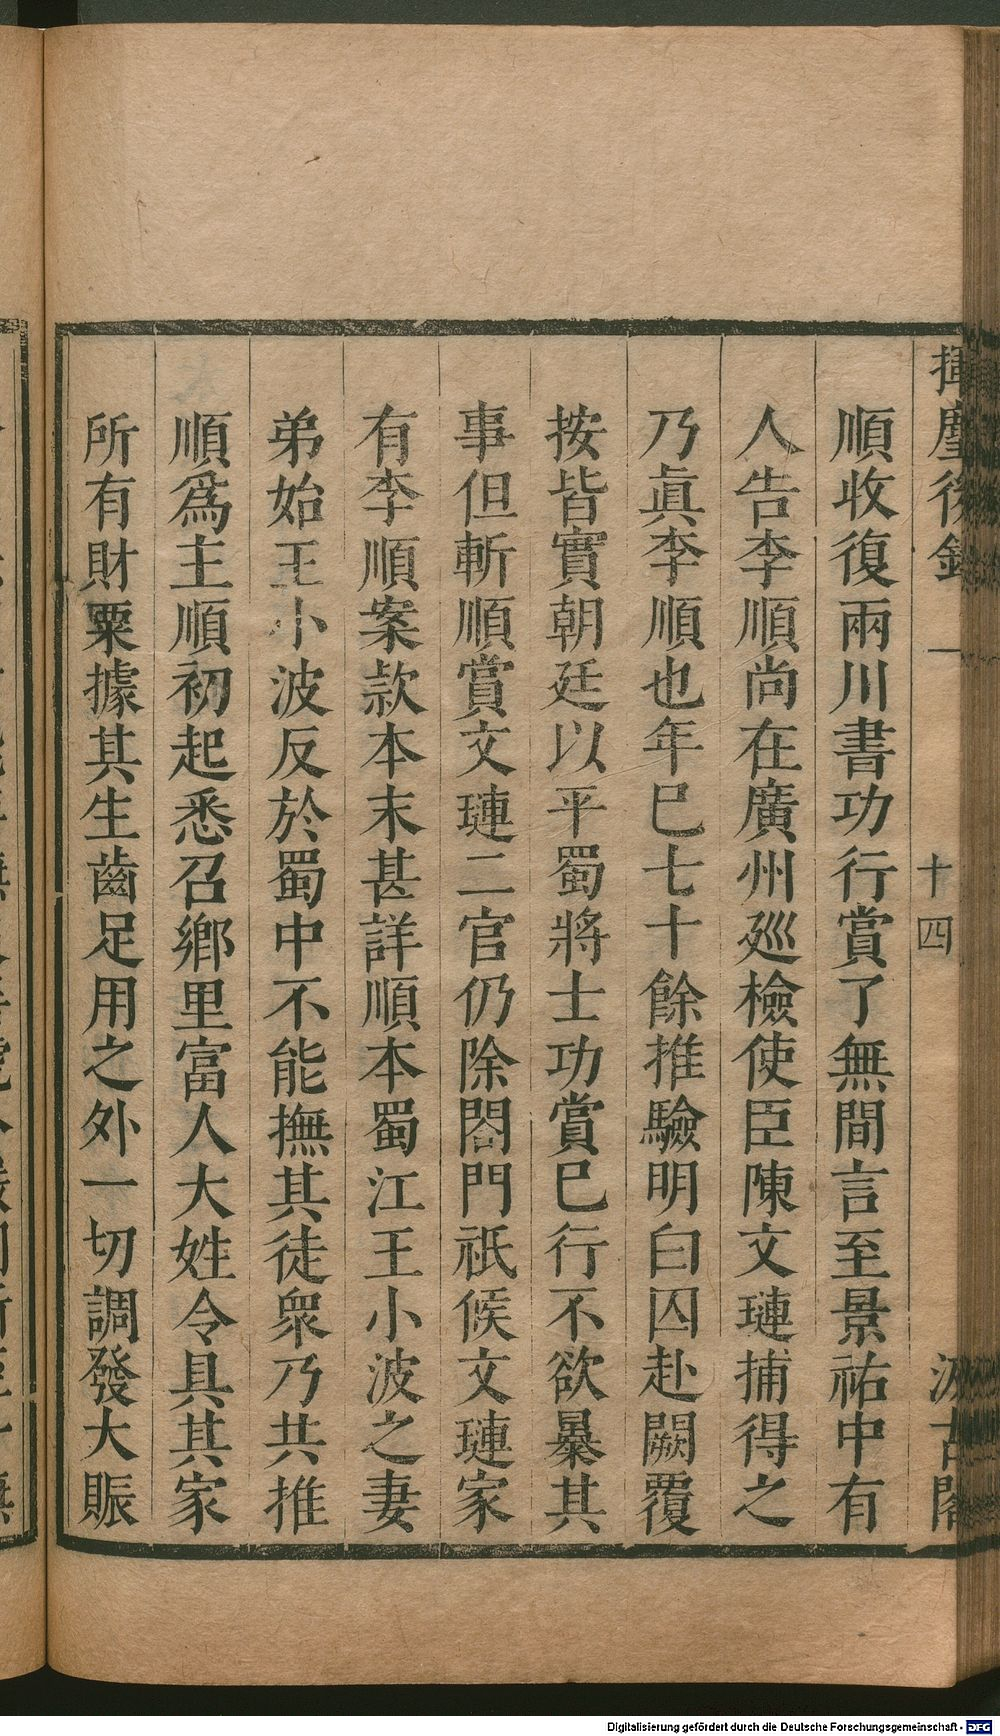 揮麈後錄 一 十四 汲古閣
順收復兩川書功行賞了無間言至景祐中有
人告李順尚在廣州廵檢使臣陳文璉捕得之
乃眞李順也年巳七十餘推驗明白囚赴闕覆
按皆實朝廷以平蜀將士功賞巳行不欲暴其
事但斬順賞文璉二官仍除閤門祇候文璉家
有李順案款本末甚詳順本蜀江王小波之妻
弟始王小波反於蜀中不能撫其徒衆乃共推
順爲主順初起悉召鄉里富人大姓令具其家
所有財粟據其生齒足用之外一切調發大賑
Digitalisierung gefördert durch die Deutsche Forschungsgemeinschaft - DFG